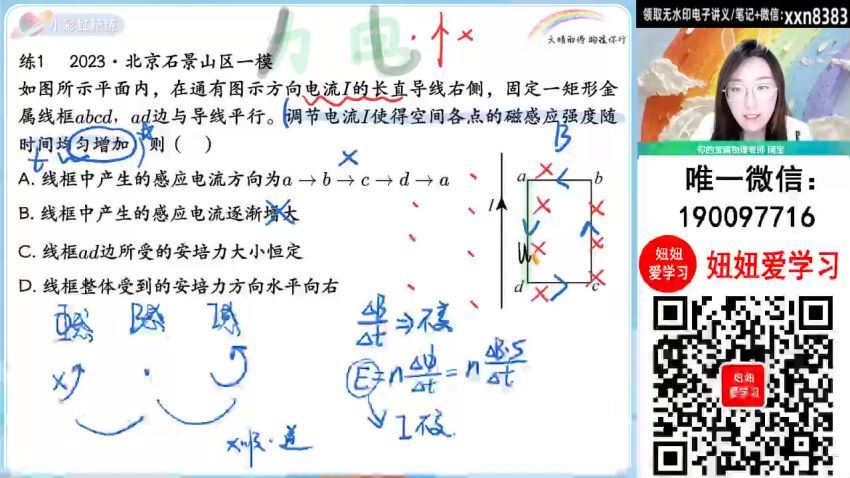 小彩虹精练
力 电
天晴雨停 晚霞保行
领取无水印电子讲义/笔记+微信：xxn8383
练1 2023·北京石景山区一模
如图所示平面内，在通有图示方向电流I的长直导线右侧，固定一矩形金
属线框abcd，ad边与导线平行。调节电流I使得空间各点的磁感应强度随
时间均匀增加，则（ ）
t
B
A. 线框中产生的感应电流方向为a→b→c→d→a
B. 线框中产生的感应电流逐渐增大
C. 线框ad边所受的安培力大小恒定
D. 线框整体受到的安培力方向水平向右
I
a b
d c
B感 I感
ΔB/Δt ⇒ 不变
E = nΔΦ/Δt = nΔB·S/Δt
I 不变
你的宝藏物理老师
唯一微信：
190097716
妞妞
爱学习
妞妞爱学习
妞妞
爱学习